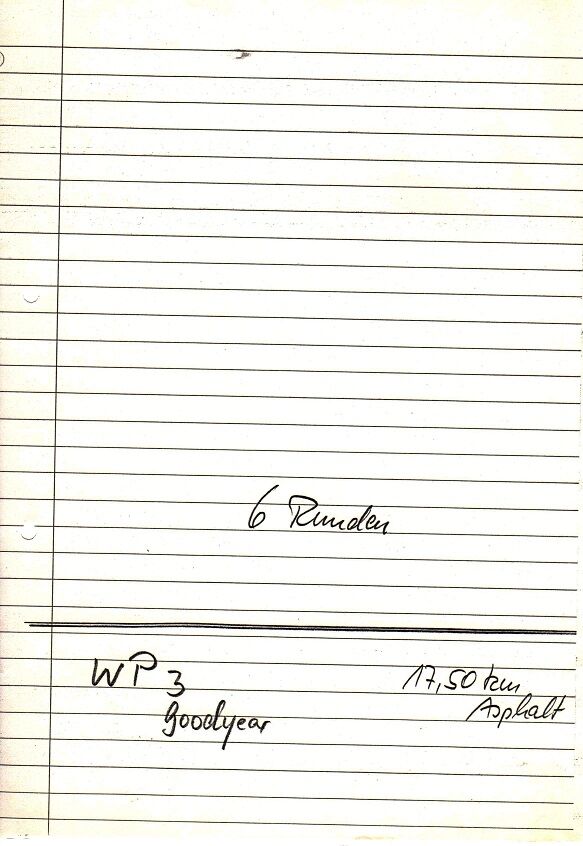 6 Runden
WP 3
goodyear
17,50 km
Asphalt